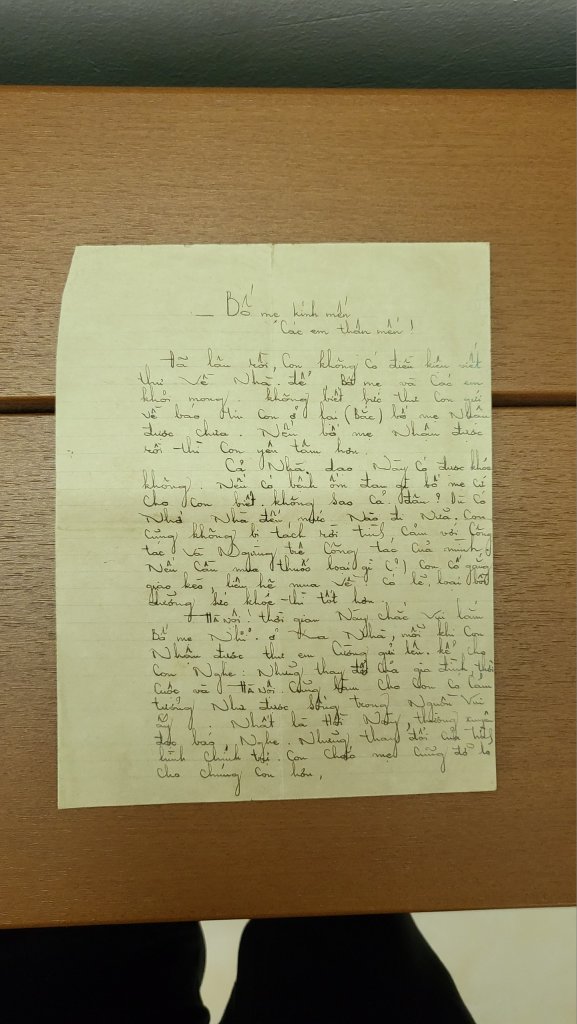 _ Bố mẹ kính mến
Các em thân mến !
Đã lâu rồi, Con không có điều kiện viết
thư Về Nhà. để Bố mẹ và Các em
khỏi mong. không biết bức thư Con gửi
về bao Con ở lai (Bắc) bố mẹ Nhân
được chưa. Nếu bố mẹ Nhân được
rồi thì Con yên tâm hơn.
Cả Nhà, dao Này Có được khỏe
không. Nếu Có bênh ốm đau gì bố mẹ cứ
cho Con biết. không sao Cả đâu? Dù Có
Nhớ Nhà đến mức Nào đi Nữa. Con
cũng không bị tách rời tình Cảm với Công
tác và Ngừng trệ Công tác của mình.
Nếu Cần mua thuốc loại gì (?) Con Cố gắng
liên hệ mua Về. Có lẽ, loại bồi
dưỡng sức khỏe thì tốt hơn.
Hà Nôi: thời gian Này chắc Vui lắm
Bố mẹ Nhỉ. ở Xa Nhà, mỗi khi Con
Nhân được thư em Cường gửi lên. kể cho
Con Nghe: Những thay đổi của gia đình
Cuôc và Hà Nôi. Cũng làm Cho Con Có Cảm
tưởng Như được Sống trong Nguồn Vui
ấy. Nhất là Nay, thường xuyên
đoc báo, Nghe. Những thay đổi của tình
hình Chính tri. Con Chắc mẹ Cũng đỡ lo
cho chúng Con hơn,